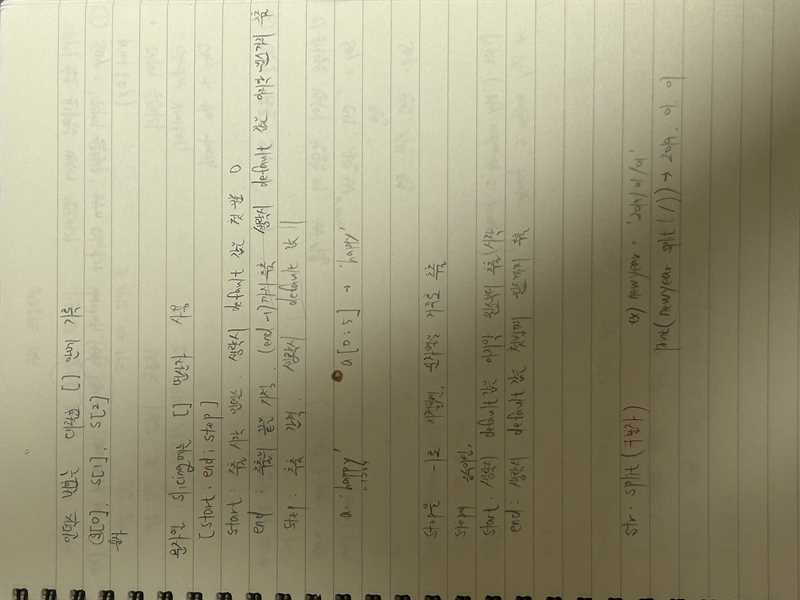 인덱스 번호는 대괄호 [] 안에 기록
s[0], s[1], s[2]
문자열 slicing에는 [] 연산자 사용
[start : end : step]
start : 추출 시작 인덱스. 생략시 default 값은 첫 글자 0
end : 추출의 끝은 지정. (end -1)까지 추출 생략시 default 값은 마지막 원소까지 추출
step : 추출 간격. 생략시 default 값 1
a = 'happy' a[0:5] → 'happy'
01234
step을 -1로 지정하면, 문자열을 거꾸로 추출
step이 음수이면,
start : 생략시 default값은 마지막 원소부터 추출 시작
end : 생략시 default 값은 첫번째 원소까지 추출
str. split (구분자) ex) newyear = '2019/01/01'
print( newyear. split (/)) → 2019, 01 01